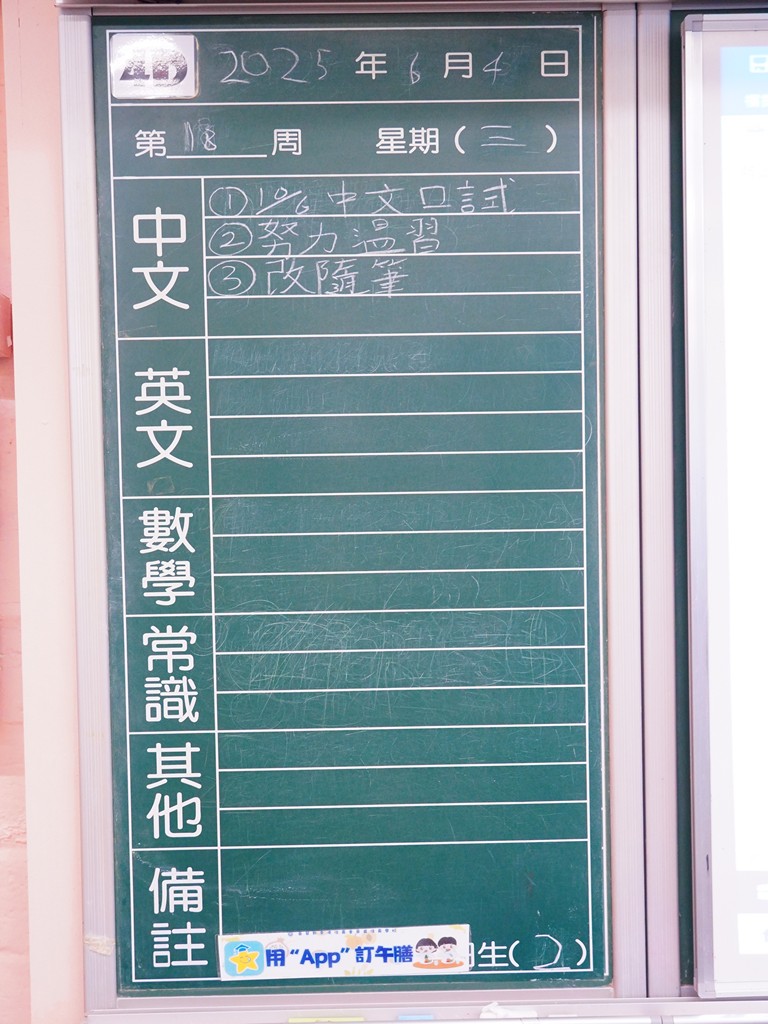 2025年6月4日
第18周 星期(三)
中文
① 10/6 中文口試
② 努力溫習
③ 改隨筆
英文
數學
常識
其他
備註
用“App”訂午膳
生(2)